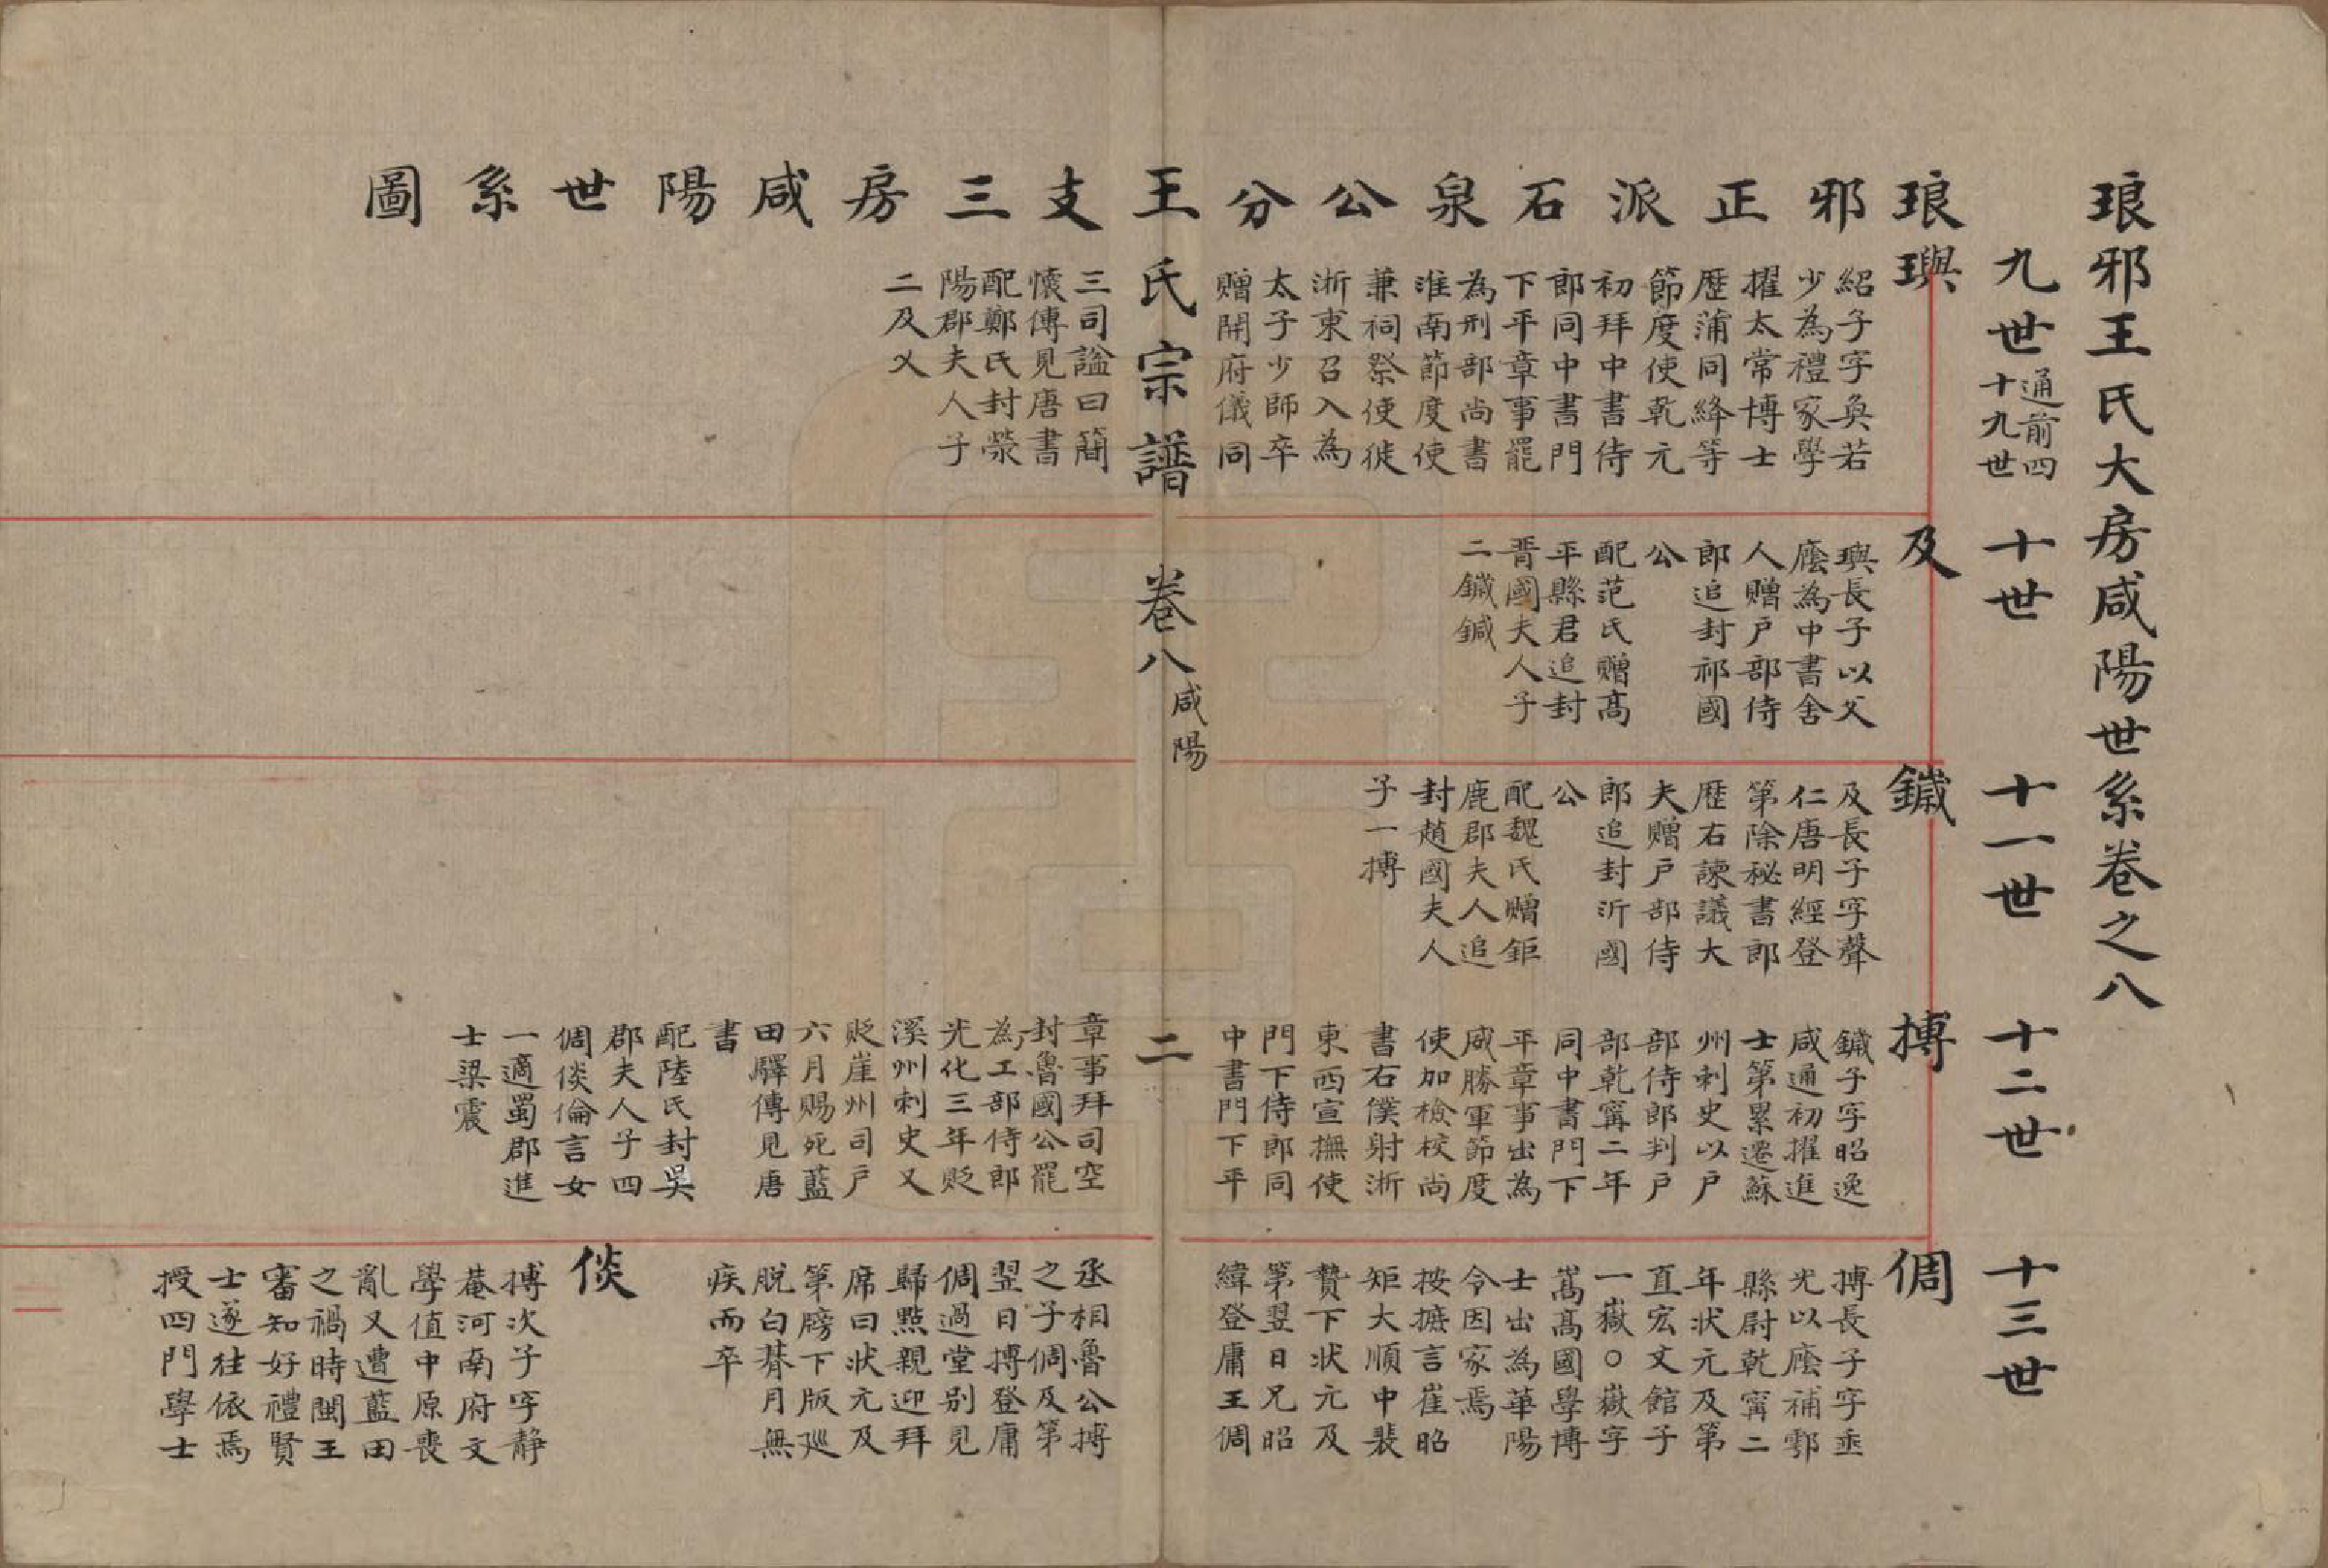 琅邪王氏大房咸陽世系卷之八
九世通前四十九世
十世
十一世
十二世
十三世
琅邪正派石泉公分支三房咸陽世系圖
璵
紹子字奐若
少為禮家學
擢太常博士
歷蒲同絳等
節度使乾元
初拜中書侍
郎同中書門
下平章事罷
為刑部尚書
淮南節度使
兼祠祭使徙
浙東召入為
太子少師卒
贈開府儀同
三司諡曰簡
懷傳見唐書
配鄭氏封滎
陽郡夫人子
二及乂
及
璵長子以父
廕為中書舍
人贈戶部侍
郎追封祁國
公
配范氏贈高
平縣君追封
晋國夫人子
二鍼鍼
鍼
及長子字聲
仁唐明經登
第除秘書郎
歷右諫議大
夫贈戶部侍
郎追封沂國
公
配魏氏贈鉅
鹿郡夫人追
封趙國夫人
子一摶
摶
鍼子字昭逸
咸通初擢進
士第累遷蘇
州刺史以戶
部侍郎判戶
部乾寧二年
同中書門下
平章事出為
威勝軍節度
使加檢校尚
書右僕射浙
東西宣撫使
門下侍郎同
中書門下平
章事拜司空
封魯國公罷
為工部侍郎
光化三年貶
溪州刺史又
貶崖州司戶
六月賜死藍
田驛傳見唐
書
配陸氏封吳
郡夫人子四
倜倓倫言女
一適蜀郡進
士梁震
倜
摶長子字垂
光以廕補鄠
縣尉乾寧二
年狀元及第
直宏文館子
一嶽○嶽字
嵩高國學博
士出為華陽
令因家焉
按摭言崔昭
矩大順中裴
贄下狀元及
第翌日兄昭
緯登庸王倜
丞相魯公摶
之子倜及第
翌日摶登庸
倜過堂别見
歸黯親迎拜
席曰狀元及
第牓下版巡
脫白朞月無
疾而卒
倓
摶次子字静
菴河南府文
學值中原喪
亂又遭藍田
之禍時閩王
審知好禮賢
士遂往依焉
授四門學士
王氏宗譜 卷八 咸陽 二